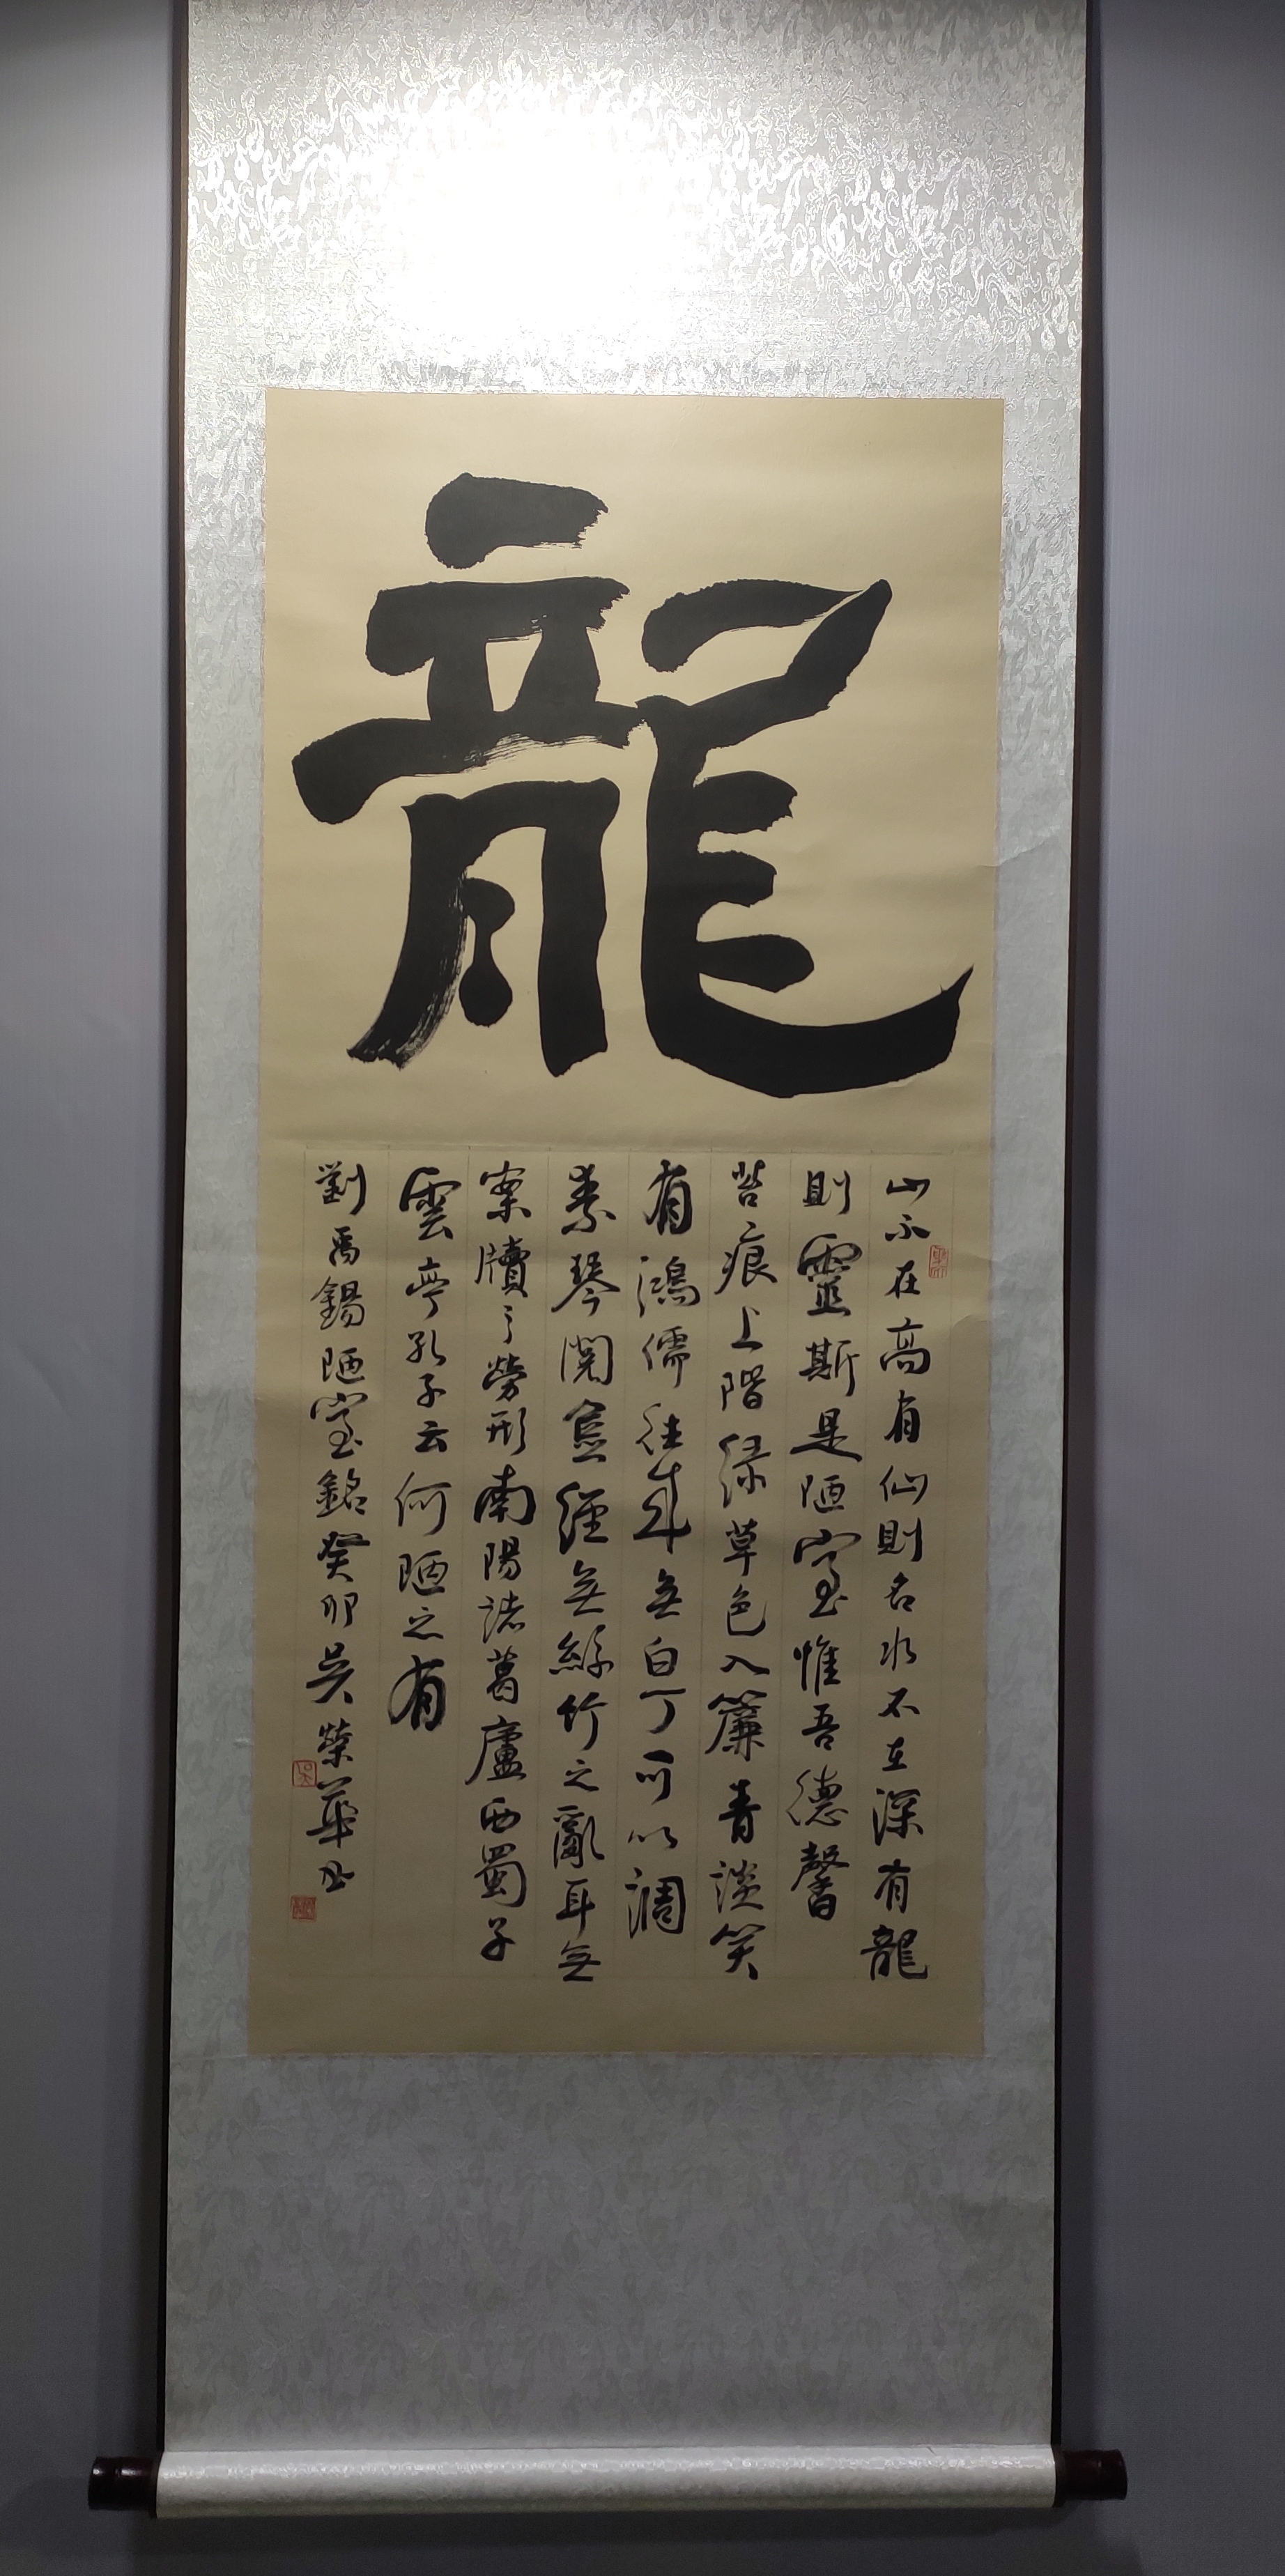 龍
山不在高有仙則名水不在深有龍
則靈斯是陋室惟吾德馨
苔痕上階綠草色入簾青談笑
有鴻儒往來無白丁可以調
素琴閱金經無絲竹之亂耳無
案牘之勞形南陽諸葛廬西蜀子
雲亭孔子云何陋之有
劉禹錫陋室銘癸卯吳榮華書